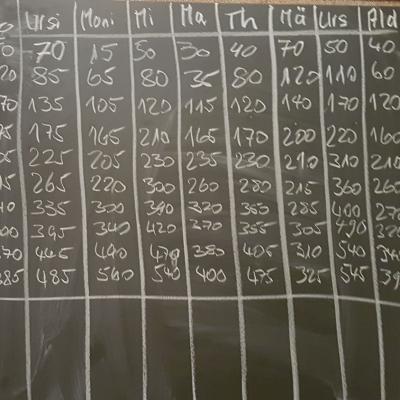 Ursi Moni Mi Ma Th Mä Urs Ald
0 70 15 50 30 40 70 50 40
20 85 65 80 35 80 120 110 60
70 135 105 120 115 120 140 170 120
5 175 165 210 165 170 200 220 160
225 205 230 235 230 210 310 210
5 265 220 300 260 280 215 360 260
335 300 390 320 350 285 400 270
00 395 340 420 370 355 305 490
70 445 490 470 380 405 310 540
385 485 560 540 400 475 325 545 39